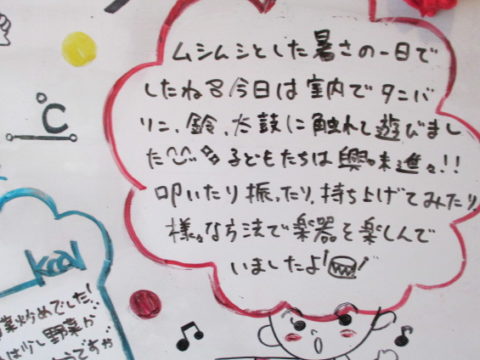 ムシムシとした暑さの一日で
したね 今日は室内でタンバ
リン、鈴、太鼓に触れて遊びまし
た 子どもたちは興味進々!!
叩いたり振ったり、持ち上げてみたり
様々な方法で楽器を楽しんで
いましたよ!
℃
kcal
菜炒めでした!
は少し野菜が